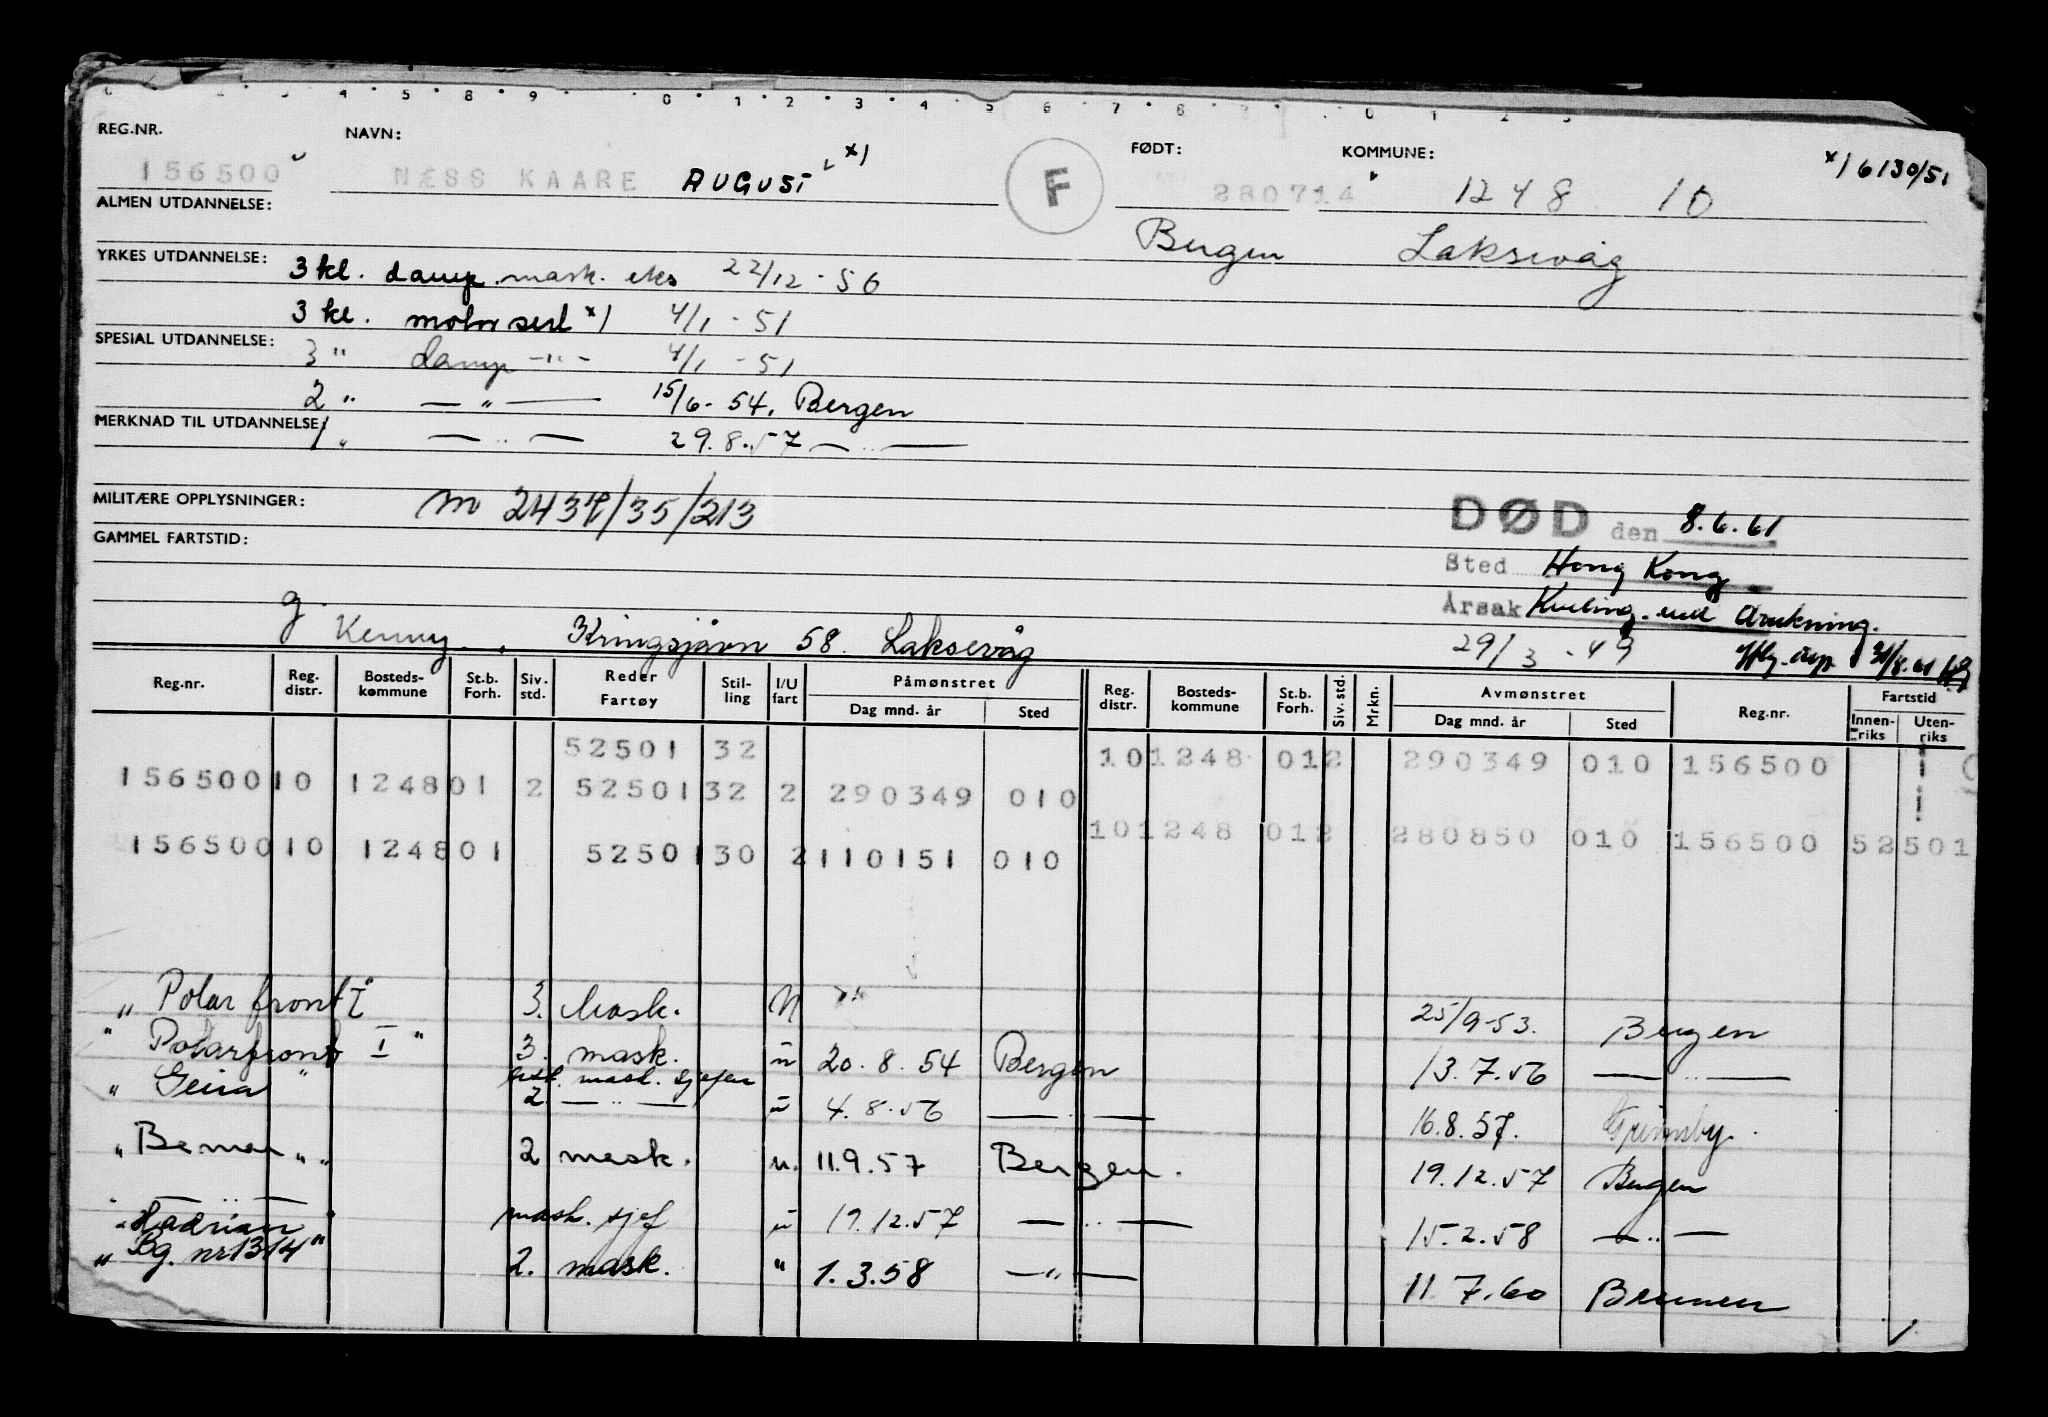 REG.NR. NAVN: FØDT: KOMMUNE: x) 6130/51
156500 NÆSS KAARE AUGUST x) F 280714 1248 10
ALMEN UTDANNELSE: Bergen Laksevåg
YRKES UTDANNELSE: 3 kl. damp. mask. eks 22/12-56
3 kl. motor sert x) 4/1-51
SPESIAL UTDANNELSE: 3 " damp -"- 4/1-51
2 " —"— 15/6-54. Bergen
MERKNAD TIL UTDANNELSE: 1 " —"— 29.8.57 —"—
MILITÆRE OPPLYSNINGER: m 2437/35/213
DØD den 8.6.61
GAMMEL FARTSTID:
Sted Hong Kong
Årsak Kveling ved drukning.
g. Kenny. Kringsjåvn 58. Laksevåg 29/3-49
Reg.nr. Reg. distr. Bosteds-kommune St.b. Forh. Siv. std. Reder Fartøy Stil-ling I/U fart Påmønstret Dag mnd. år Sted Reg. distr. Bosteds-kommune St.b. Forh. Siv. std. Mrkn. Avmønstret Dag mnd. år Sted Reg.nr. Fartstid Innen-riks Uten-riks
52501 32 10 1248 01 2 290349 010 156500
156500 10 1248 01 2 52501 32 2 290349 010
10 1248 01 2 280850 010 156500 52501
156500 10 1248 01 52501 30 2 110151 010
" Polarfront I" 3. Mask. U 25/9-53. Bergen
" Polarfront I " 3. mask. u 20.8.54 Bergen 13.7.56 —"—
" Geira " 2. —"— u 4.8.56 —"— 16.8.57. Grimsby.
" Bemar " " 2 mask. u. 11.9.57 Bergen. 19.12.57 Bergen
—"— mask. sjef u 19.12.57 —"— 15.2.58 —"—
" Hadrian "
" Bg. nr 1314 " 2. mask. " 1.3.58 —"— 11.7.60 Bremen